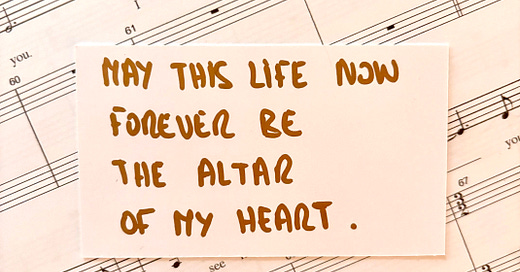 you.
60
61
MAY THIS LIFE NOW
FOREVER BE
THE ALTAR
OF MY HEART.
67
see